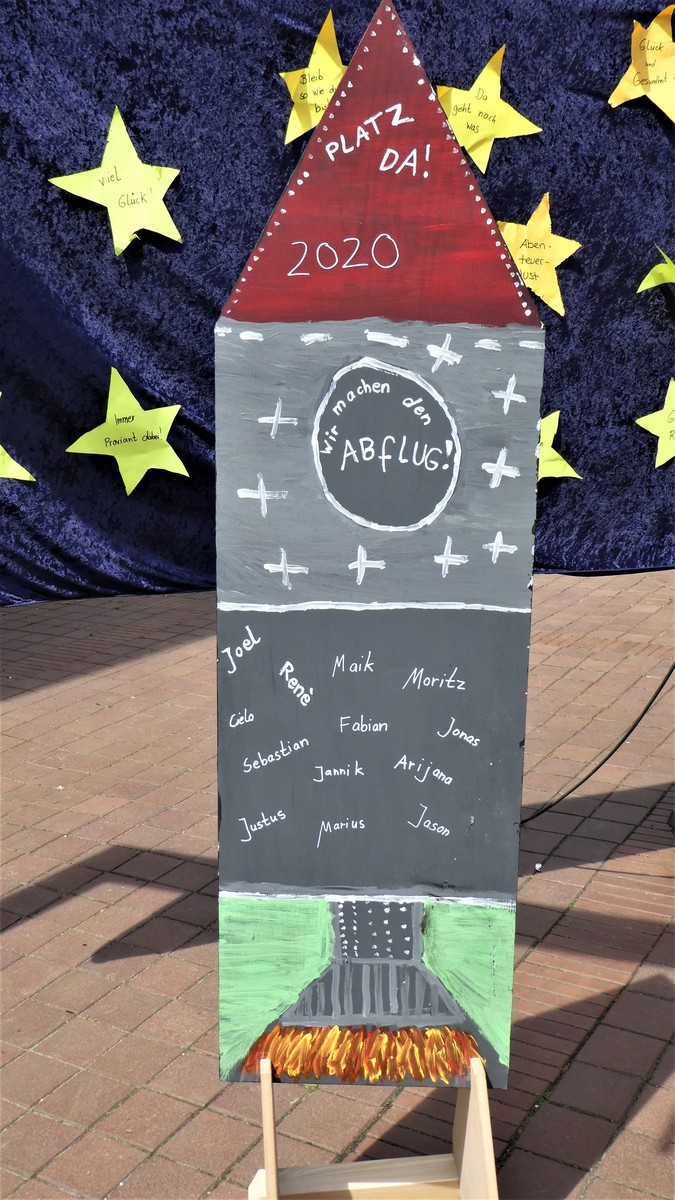 PLATZ
DA!
2020
wir machen den
ABfLUG!
Joel
Renè
Maik
Moritz
Cielo
Fabian
Jonas
Sebastian
Jannik
Arijana
Justus
Marius
Jason
viel
Glück!
Bleib
so wie du
Da
geht noch
was
Glück
und
Gesundheit
Aben-
teuer-
lust
Immer
Proviant dabei!